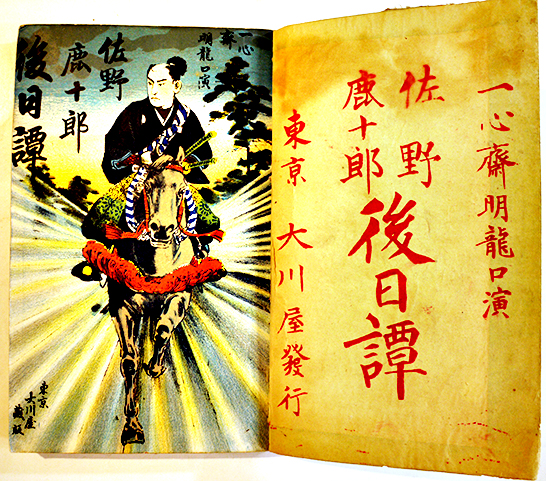 一心齋明龍口演
佐野
鹿十郎
後日譚
東京
大川屋
藏版
一心齋明龍口演
佐野
鹿十郎
後日譚
東京 大川屋發行